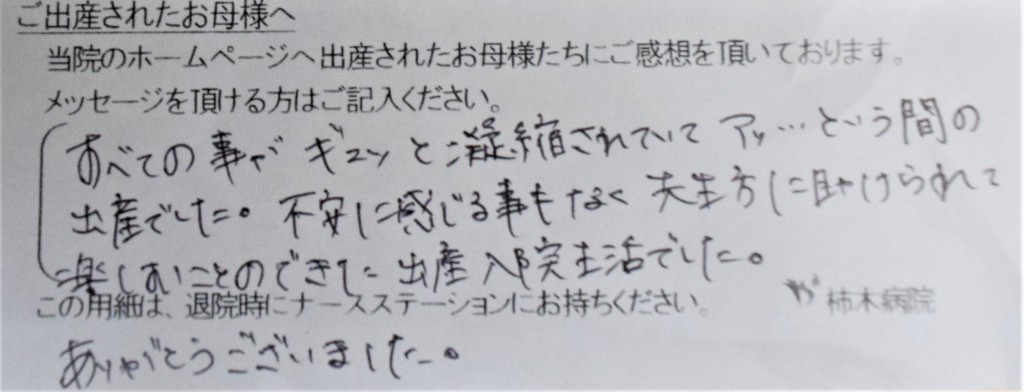 ご出産されたお母様へ
当院のホームページへ出産されたお母様たちにご感想を頂いております。
メッセージを頂ける方はご記入ください。
すべての事がギュッと凝縮されていてアッ…という間の
出産でした。不安に感じる事もなく先生方に助けられて
楽しむことのできた出産入院生活でした。
この用紙は、退院時にナースステーションにお持ちください。
柿木病院
ありがとうございました。